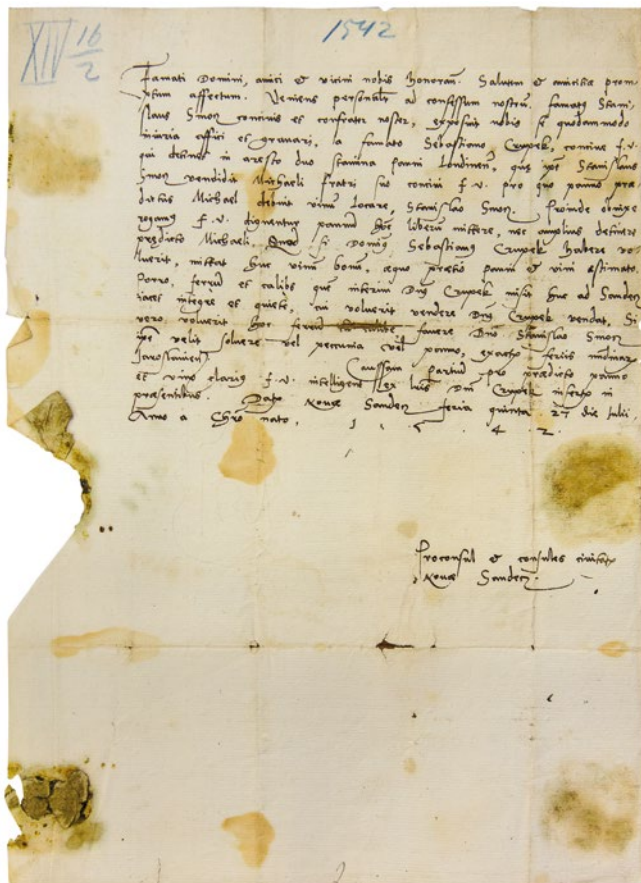 XIV 16/2
1542
Famati Domini, amici et vicini nobis honoran. Salutem et amicitiæ prom
ptum affectum. Veniens personalr ad consessum nostrū. famatq Stani,
slaus Smoz concivis et confrater noster, exposuit nobis se quodammodo
iniuria affici et gravari, a famato Sebastiano Czupek, concive f.v.
qui detinet in aresto duo stamina panni Londinen, quę ipse Stanislaus
Smoz vendidit Michaeli fratri suo concivi f.v. pro quo panno præ
dictus Michael debuit vinū locare, Stanislao Smoz. Proinde obnixe
rogamq f.v. dignentur pannū hūc liberū mittere, nec amplius detinere
prædicto Michaeli. Quod si Dominq Sebastianq Czupek habere vo
luerit, mittat huc vinū bonū, æquo prætio panni et vini æstimato.
Porro, ferrū et calibs quę interim Dnq Czupek misit huc ad Sandecz
iacet integre et quiete, cui voluerit vendere Dnq Czupek vendat. Si
vero voluerit hoc ferrū favere Dno Stanislao Smoz
ipse velit solvere vel peccunia vel panno, exacto feriis nundinar
Jaroslavien. Caussam partiū pro prædicto panno
et vino clariq f.v. intelligent ex luis Dni Czupek inserto in
præsentibus. Datæ Novæ Sandecz feria quinta 27 die Iulii,
Anno a Chrō nato, 1 5 4 2.
Proconsul et consules civitatis
Novæ Sandecz.